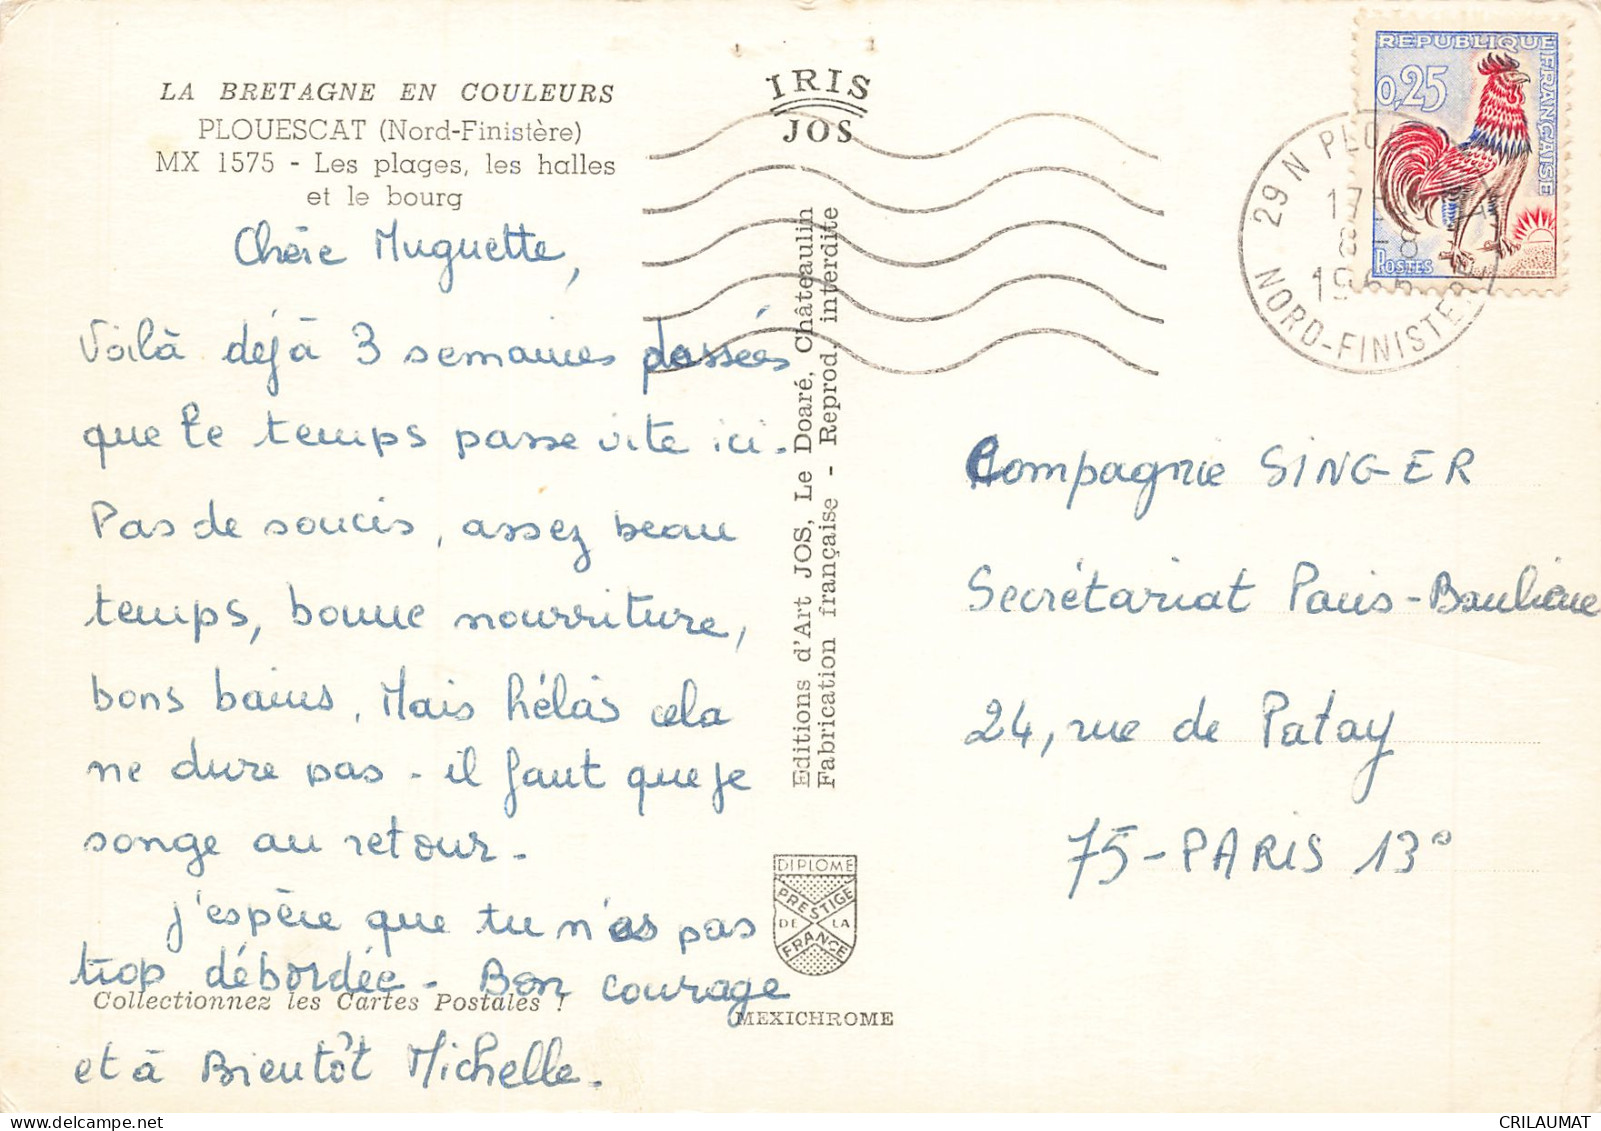 LA BRETAGNE EN COULEURS
PLOUESCAT (Nord-Finistère)
MX 1575 - Les plages, les halles
et le bourg
Chère Muguette,
Voilà déjà 3 semaines passées
que le temps passe vite ici.
Pas de soucis, assez beau
temps, bonne nourriture,
bons bains, Mais hélàs cela
ne dure pas - il faut que je
songe au retour.
J'espère que tu n'as pas
trop débordée. Bon courage
et à Bientôt Michelle.
Collectionnez les Cartes Postales !
IRIS
JOS
Editions d'Art JOS, Le Doaré, Châteaulin
Fabrication française - Reprod. interdite
DIPLOME
PRESTIGE
DE LA
FRANCE
MEXICHROME
REPUBLIQUE
FRANÇAISE
0,25
POSTES
29 N PLO
17
8 -8
196
NORD-FINISTERE
Compagnie SINGER
Secrétariat Paris-Banlieue
24, rue de Patay
75-PARIS 13°
CRILAUMAT